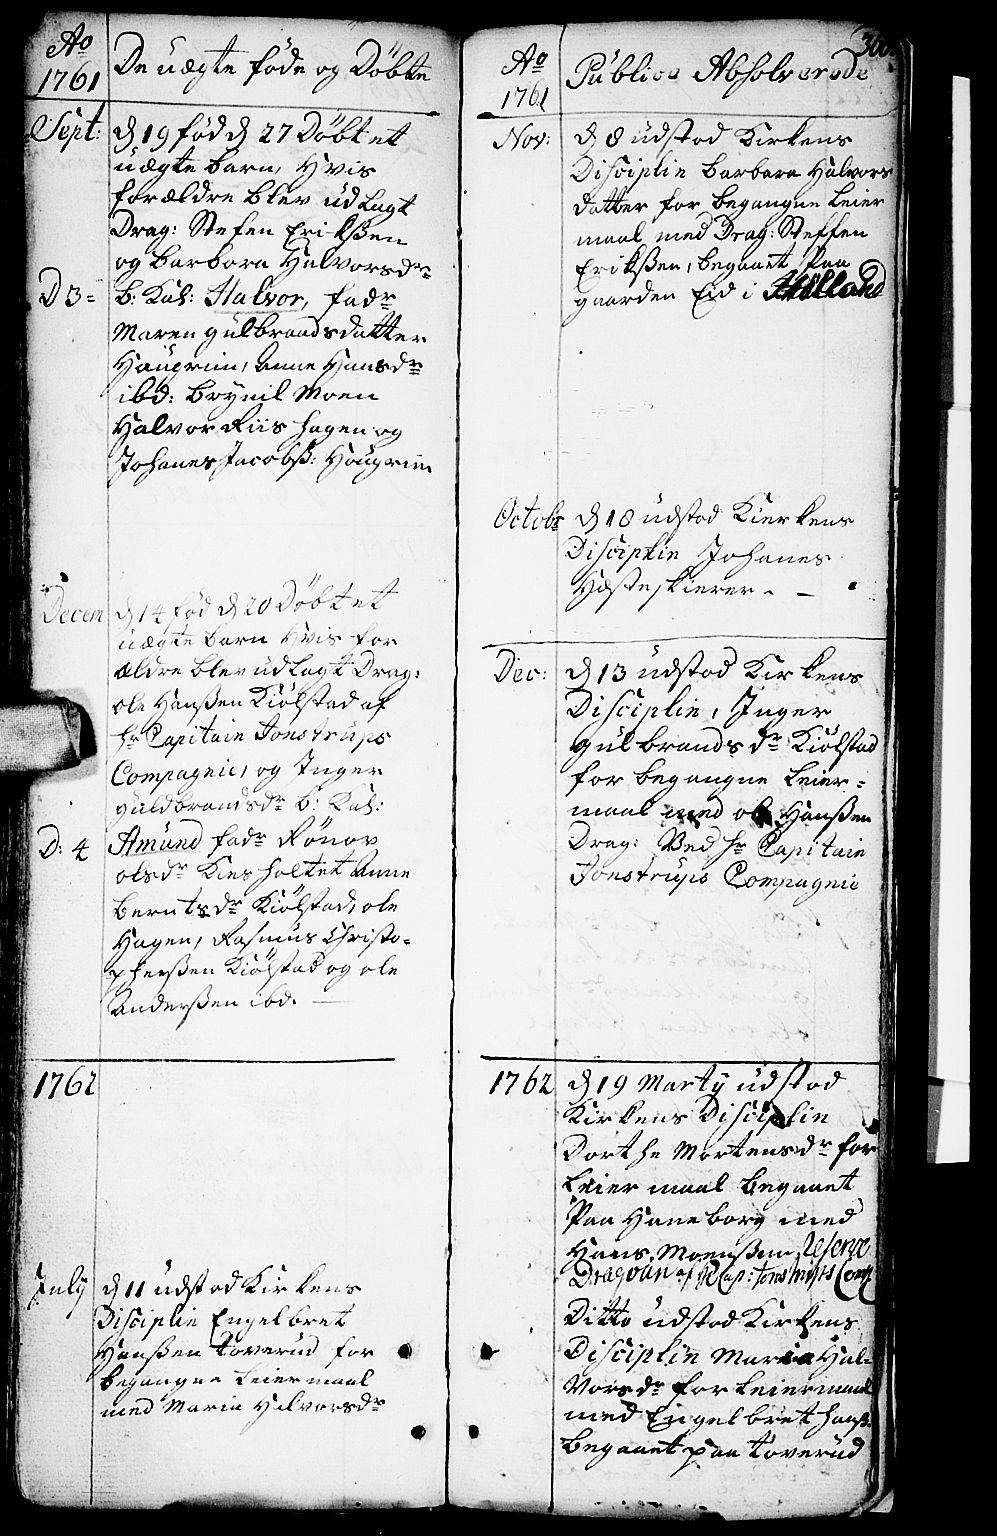 Ao
1761
De uægte føde og Døbte
Sept: d 19 fød d 27 Døbt et
uægte barn, Hvis
forældre blev udlagt
Drag: Stefen Erikßen
og barbara Halvorsdr
D 3= b: Kal: Halvor, fadr
Maren gulbrandsdatter
Haugrim, Anne Hansdr
ibd: Brynil Moen
Halvor Riishagen og
Johanes Jacobß: Haugrim
Decem d 14 fød d 20 Døbt et
uægte barn Hvis for
ældre blev udlagt Drag:
ole Hanßen Kiølstad af
hr Capitain Tonstrups
Compagnie, og Inger
guldbrandsdr b: Kal:
D: 4 Amund fadr Rønov
olsdr Kiesholtet Anne
berntsdr Kiølstad, ole
Hagen, Rasmus Christo-
pherßen Kiølstad og ole
Anderßen ibd.
1762
July d 11 udstod Kirkens
Disciplin Engelbret
Hanßen Toverud for
begangne Leiermaal
med Maria Halvorsdr
366
Ao
1761
Publice Absolverede
Nov: d 8 udstod Kirkens
Disciplin barbara Halvors
datter for begangne Leier
maal med Drag: Steffen
Erikßen, begaaet paa
gaarden Eid i Høland
Octobr d 18 udstod Kierkens
Disciplin Johanes
Hæsteskierer.
Dec: d 13 udstod Kirkens
Disciplin, Inger
gulbrandsdr Kiølstad
for begangne Leier-
maal med ole Hanßen
Drag: Ved hr Capitain
Tonstrups Compagnie
1762 d 19 Marty udstod
Kirkens Disciplin
Dorthe Mortensdr for
Leiermaal begaaet
paa Haneborg med
Hans Moenßen, Reserve
Dragoun af hr Cap: Tonstrups Comp
Ditto udstod Kirkens
Disciplin Maria Hal-
vorsdr for Leiermaal
med Engelbret Hanß:
begaaet paa Toverud